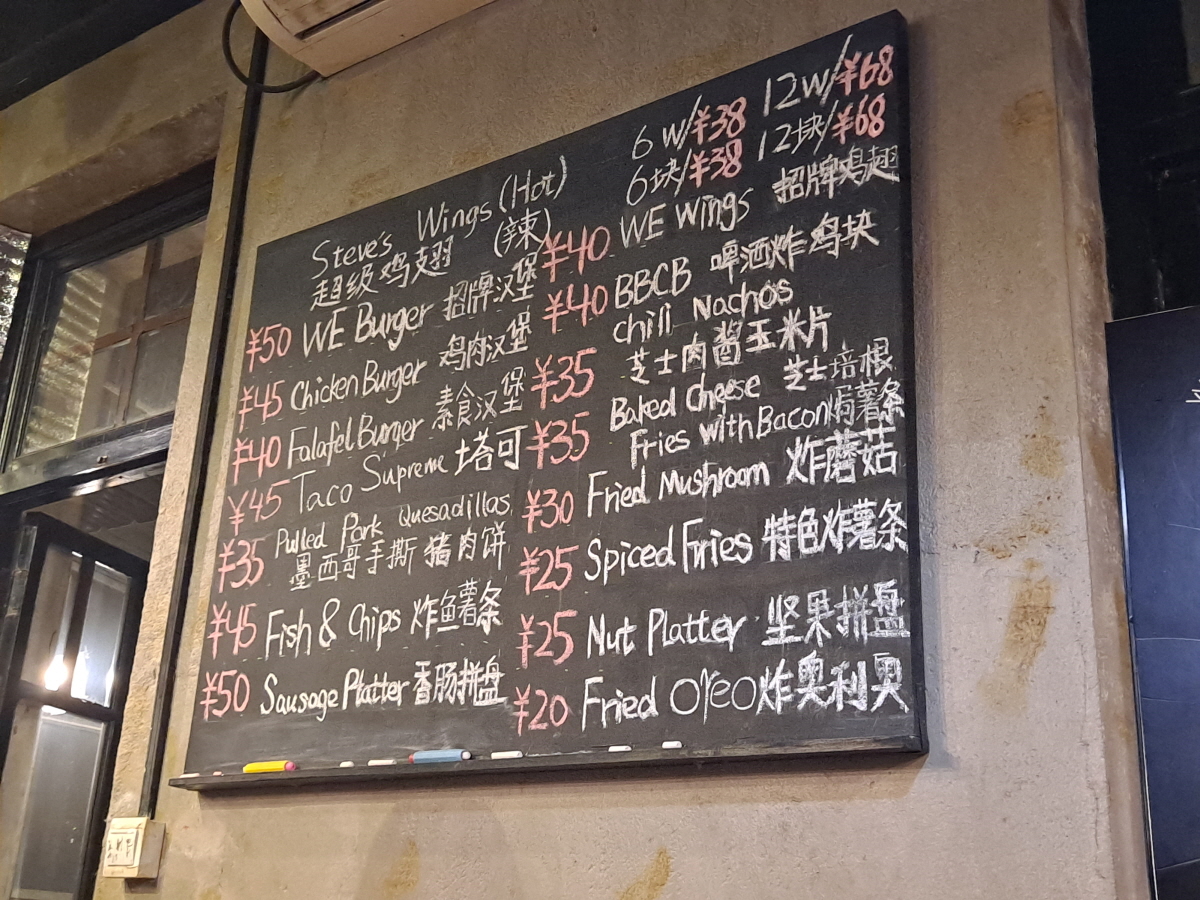 Steve's Wings (Hot) 6 W/¥38 12W/¥68
超级鸡翅 (辣) 6块/¥38 12块/¥68
¥50 WE Burger 招牌汉堡
¥45 Chicken Burger 鸡肉汉堡
¥40 Falafel Burger 素食汉堡
¥45 Taco Supreme 塔可
¥35 Pulled Pork Quesadillas
墨西哥手撕猪肉饼
¥45 Fish & Chips 炸鱼薯条
¥50 Sausage Platter 香肠拼盘
¥40 WE Wings 招牌鸡翅
¥40 BBCB 啤酒炸鸡块
¥35 Chili Nachos
芝士肉酱玉米片
¥35 Baked Cheese 芝士培根
Fries with Bacon 焗薯条
¥30 Fried Mushroom 炸蘑菇
¥25 Spiced Fries 特色炸薯条
¥25 Nut Platter 坚果拼盘
¥20 Fried Oreo 炸奥利奥